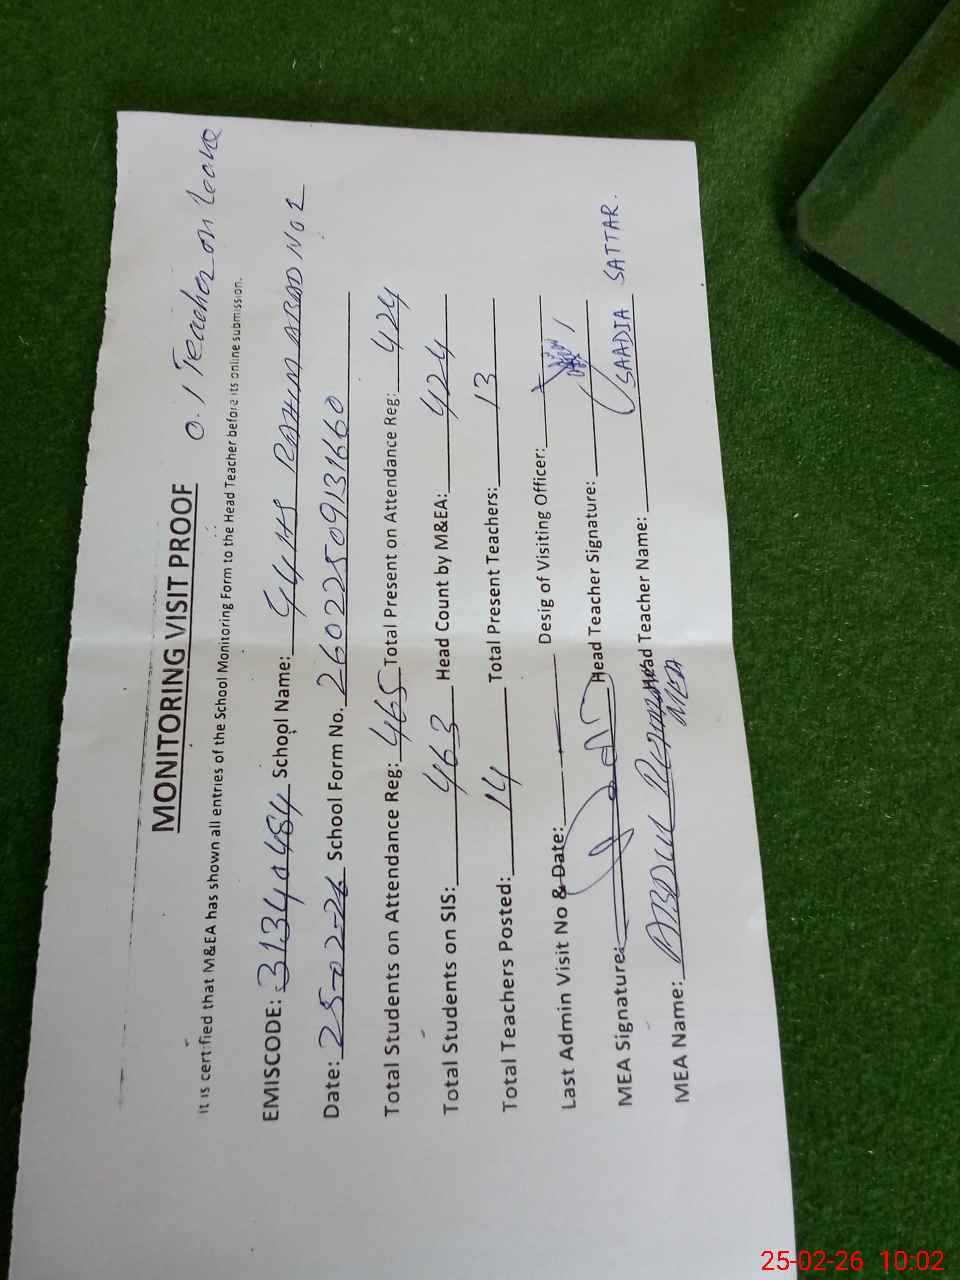 O. 1 Teacher on leave
MONITORING VISIT PROOF
It is certified that M&EA has shown all entries of the School Monitoring Form to the Head Teacher before its online submission.
EMISCODE: 31340484 School Name: GGHS RAHIM ABAD NO 2
Date: 25-02-26 School Form No. 26022509131660
Total Students on Attendance Reg: 465 Total Present on Attendance Reg: 424
Total Students on SIS: 463 Head Count by M&EA: 424
Total Teachers Posted: 14 Total Present Teachers: 13
Last Admin Visit No & Date: Desig of Visiting Officer:
MEA Signature: Head Teacher Signature:
MEA Name: ABDUL REHMAN Head Teacher Name: SAADIA SATTAR.
MEA
25-02-26 10:02